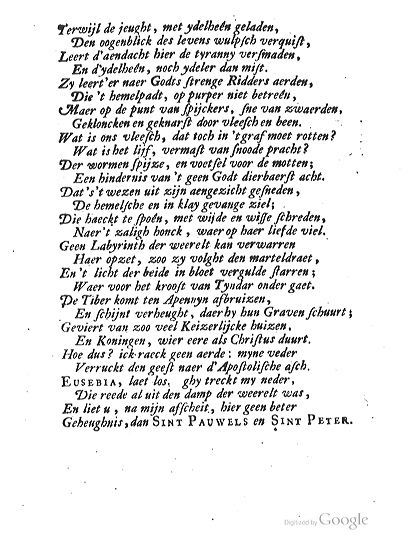 Terwijl de jeught, met ydelheên geladen,
Den oogenblick des levens wulpsch verquist,
Leert d'aendacht hier de tyranny versmaden,
En d'ydelheên, noch ydeler dan mist.
Zy leert'er naer Godts strenge Ridders aerden,
Die 't hemelpadt, op purper niet betreên,
Maer op de punt van spijckers, sne van zwaerden,
Gekloncken en geknarst door vleesch en been.
Wat is ons vleesch, dat toch in 't graf moet rotten?
Wat is het lijf, vermast van snoode pracht?
Der wormen spijze, en voetsel voor de motten;
Een hindernis van 't geen Godt dierbaerst acht.
Dat 's 't wezen uit zijn aengezicht gesneden,
De hemelsche en in klay gevange ziel;
Die haeckt te spoên, met wijde en wisse schreden,
Naer 't zaligh honck, waer op haer liefde viel.
Geen Labyrinth der weerelt kan verwarren
Haer opzet, zoo zy volght den marteldraet,
En 't licht der beide in bloet vergulde starren;
Waer voor het kroost van Tyndar onder gaet.
De Tiber komt ten Apennyn afbruizen,
En schijnt verheught, daer hy hun Graven schuurt;
Geviert van zoo veel Keizerlijcke huizen,
En Koningen, wier eere als Christus duurt.
Hoe dus? ick raeck geen aerde: myne veder
Verruckt den geest naer d'Apostolische asch.
EUSEBIA, laet los. ghy treckt my neder,
Die reede al uit den damp der weerelt was,
En liet u, na mijn afscheit, hier geen beter
Geheughnis, dan SINT PAUWELS en SINT PETER.
Digitized by Google